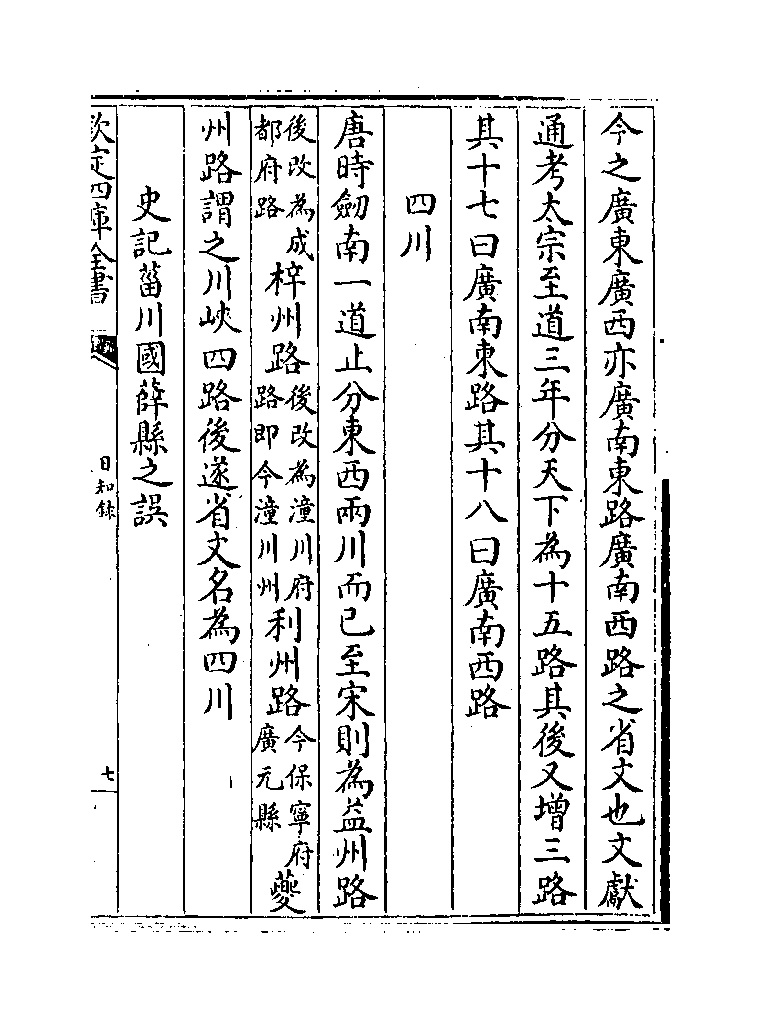 今之廣東廣西亦廣南東路廣南西路之省文也文獻
通考太宗至道三年分天下為十五路其後又增三路
其十七曰廣南東路其十八曰廣南西路
四川
唐時劒南一道止分東西兩川而已至宋則為益州路
後改為成都府路梓州路後改為潼川府路即今潼川州利州路今保寧府廣元縣夔
州路謂之川峽四路後遂省文名為四川
史記菑川國薛縣之誤
欽定四庫全書
日知錄
七